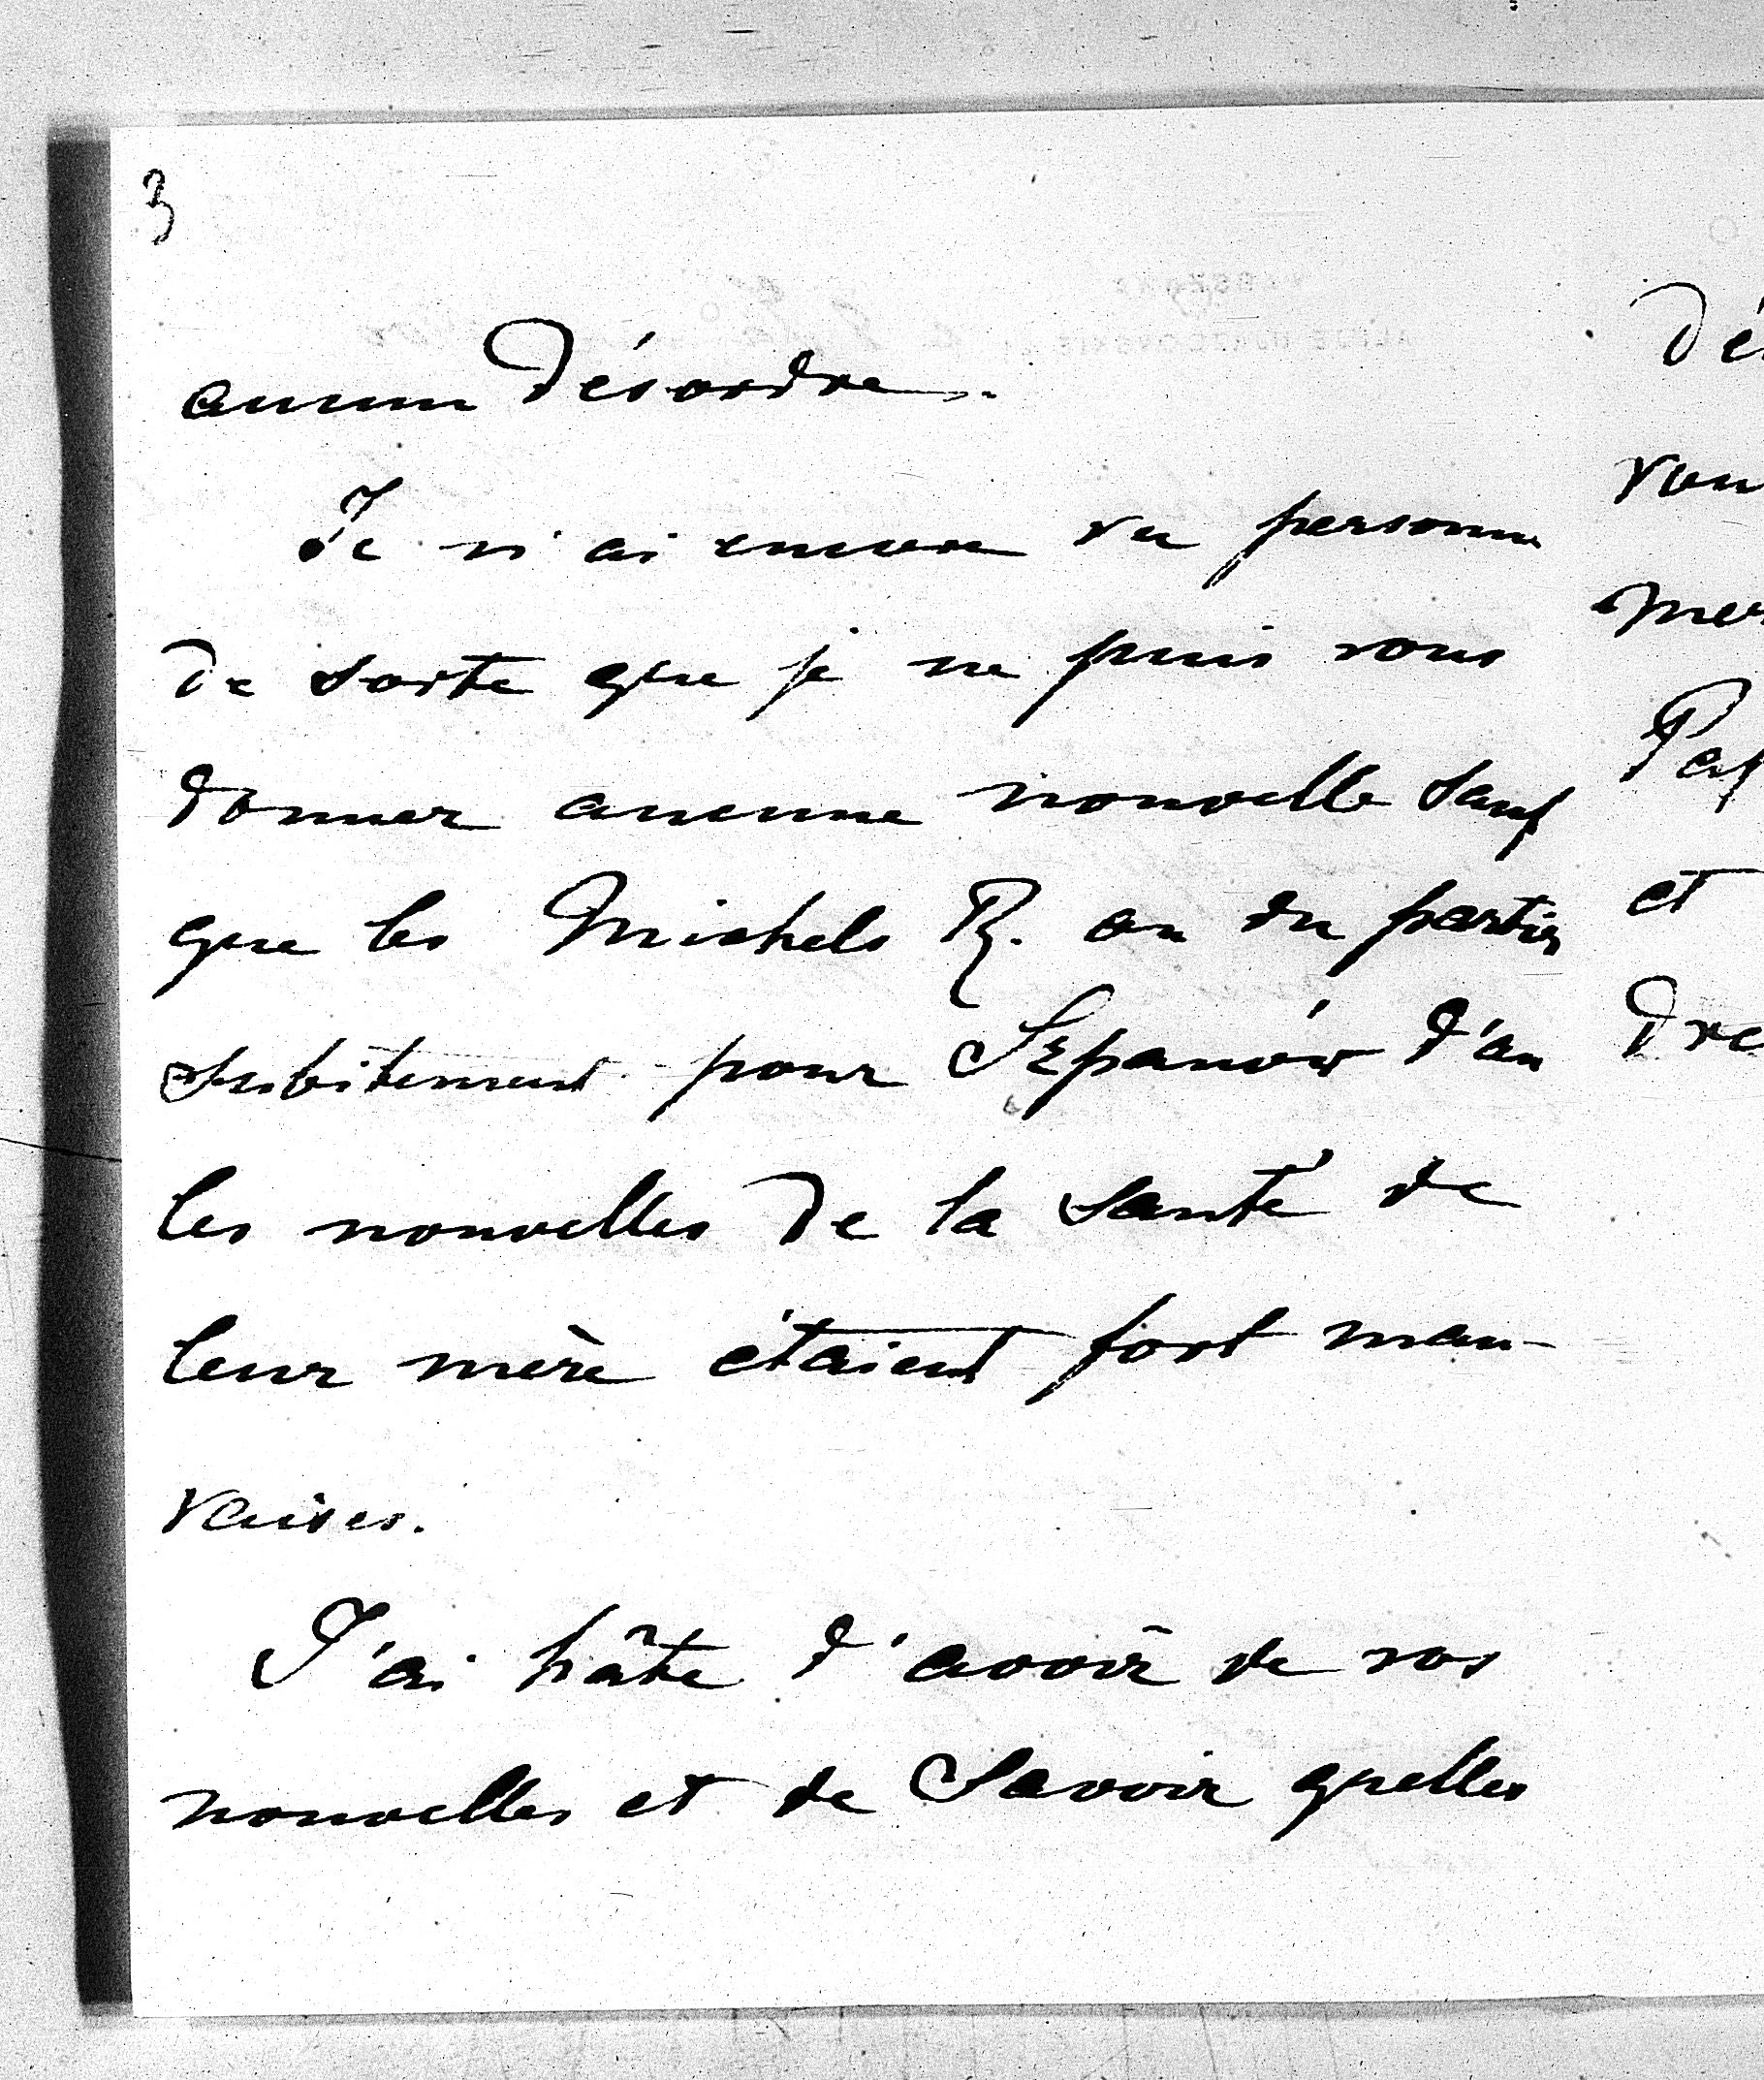 3
aucun désordre.
Je n'ai encore vu personne
de sorte que je ne puis vous
donner aucune nouvelle sauf
que les Michels R. on du partir
subitement pour Szpanów d'ou
les nouvelles de la santé de
leur mère étaient fort mau-
vaises.
J'ai hâte d'avoir de vos
nouvelles et de savoir quelles
et